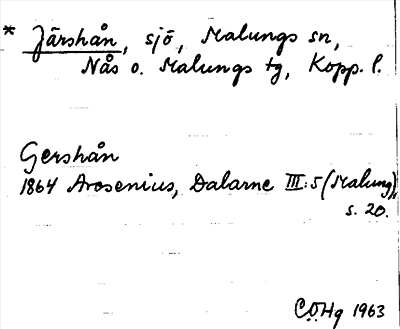 * Järshån, sjö, Malungs sn,
Nås o. Malungs tg, Kopp. l.
Gershån
1864 Arosenius, Dalarne III:5 (Malung),
s. 20.
C.O.Hg 1963